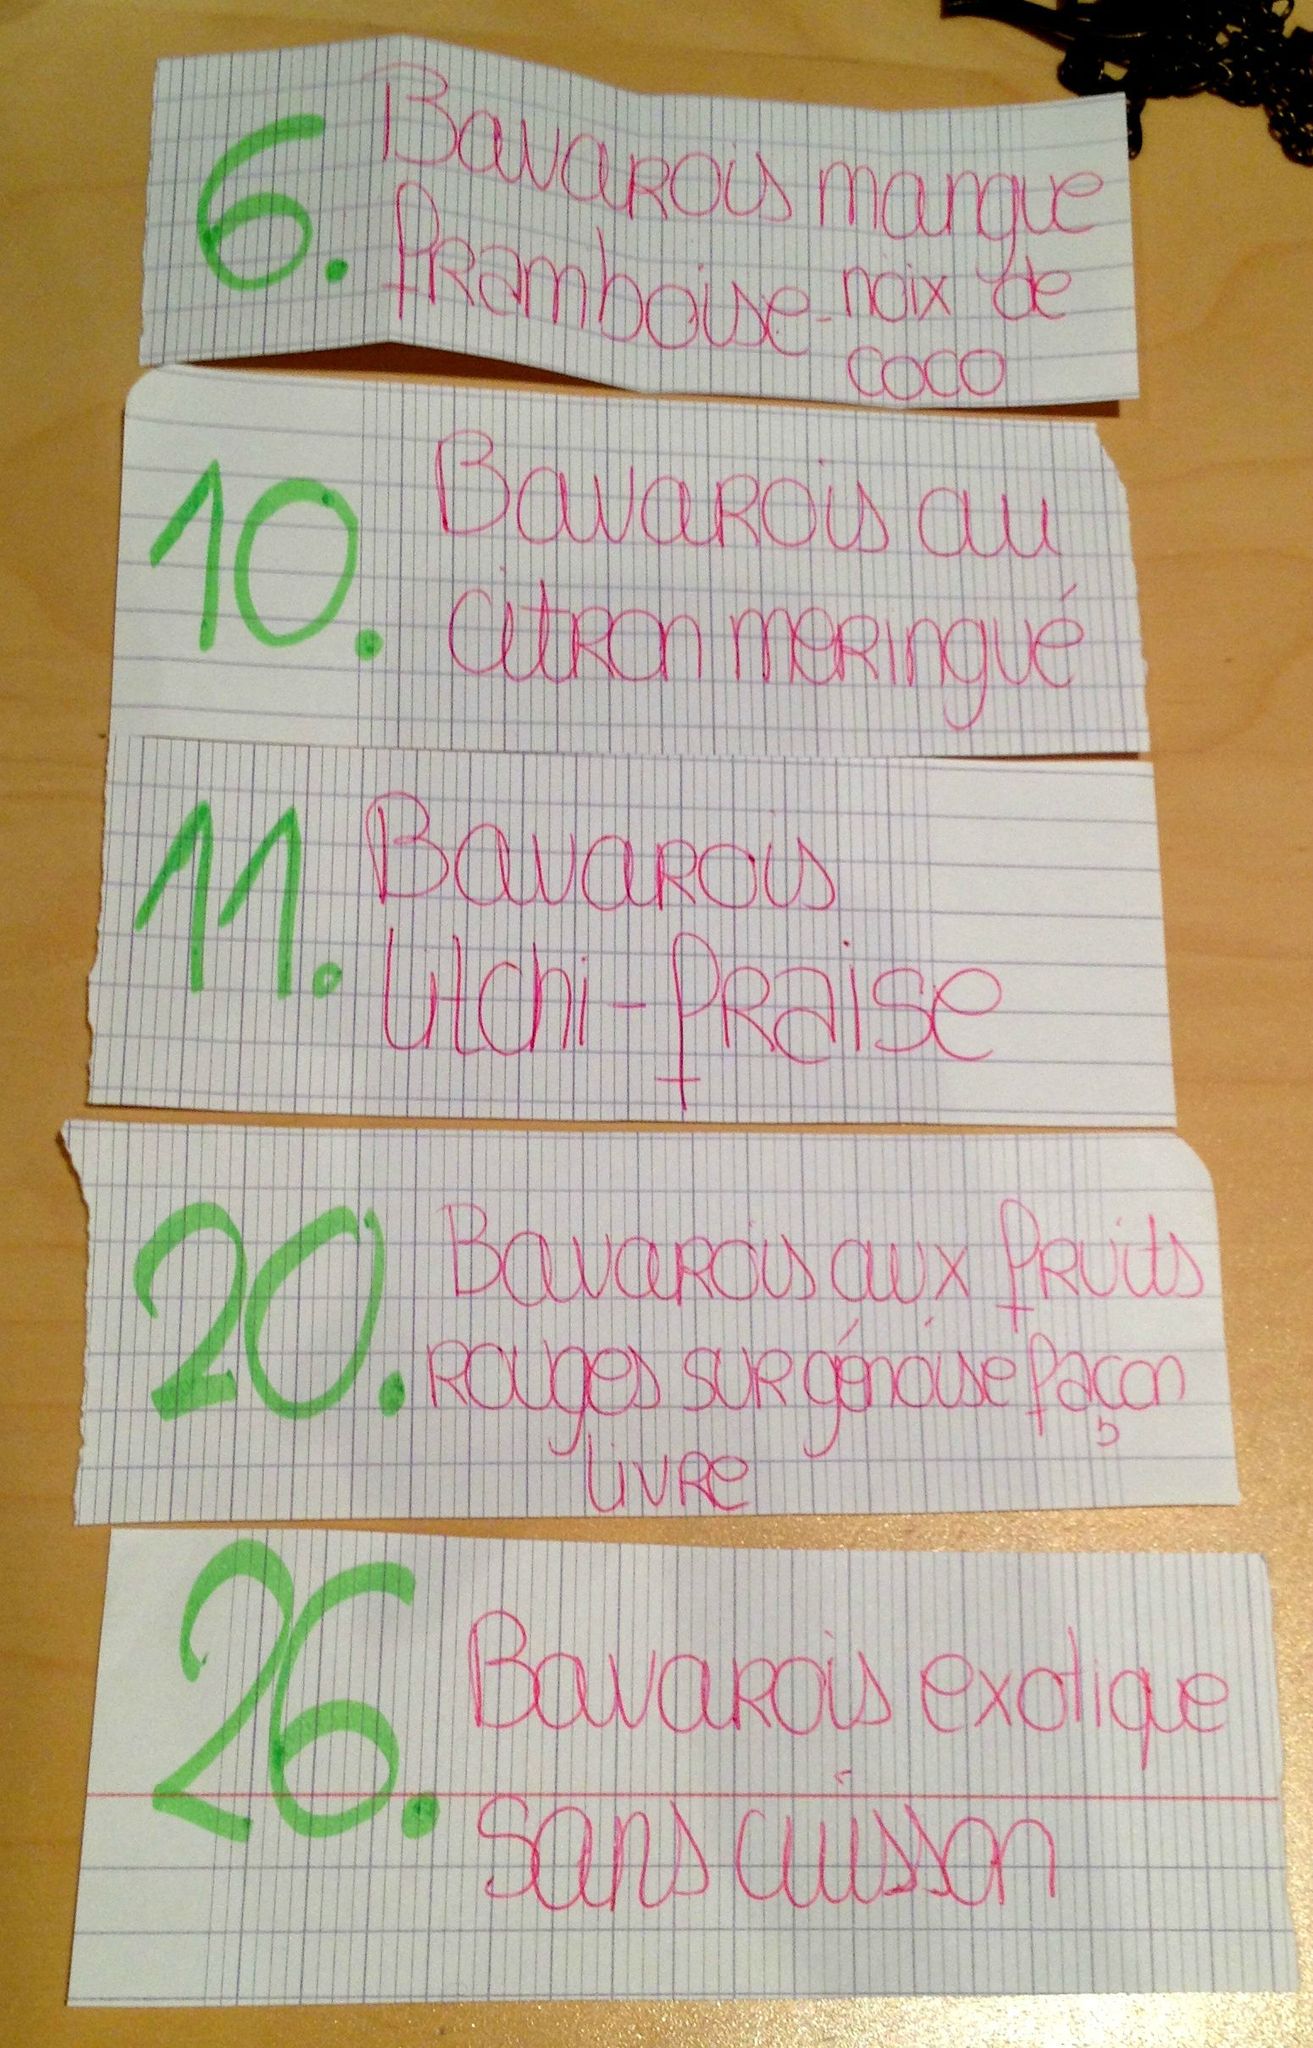 6. Bavarois mangue
framboise - noix de
coco
10. Bavarois au
citron meringué
11. Bavarois
litchi - fraise
20. Bavarois aux fruits
rouges sur génoise façon
livre
26. Bavarois exotique
sans cuisson